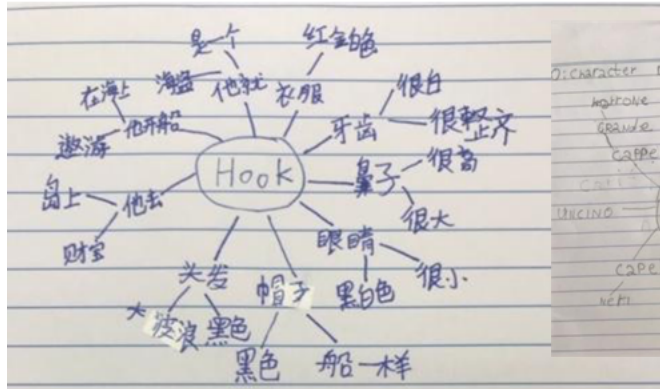 是一个
海盗
他就
红金白色
衣服
很白
很整齐
牙齿
在海上
遨游
他开船
Hook
鼻子
很高
很大
岛上
他去
财宝
眼睛
很小
黑白色
头发
大波浪
黑色
帽子
黑色
船一样
Character
GRANDE
CAPPE
UNCINO
CAPE
NERI